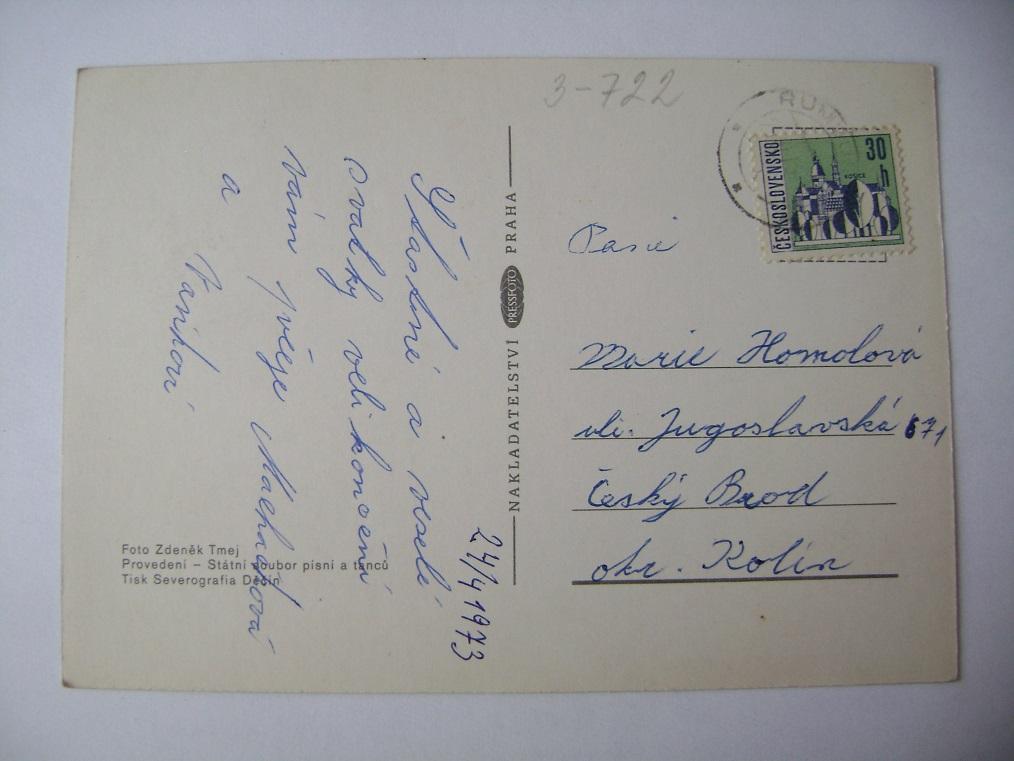 3-722
RUM
ČESKOSLOVENSKO
30
h
KOŠICE
Pasie
Marie Homolová
uli. Jugoslavská 671
Český Brod
okr. Kolín
NAKLADATELSTVÍ PRESSFOTO PRAHA
Šťastné a veselé
svátky velikonoční
vám přeje Machačková
a Vaňkovi
24/4 1973
Foto Zdeněk Tmej
Provedení – Státní soubor písní a tanců
Tisk Severografia Děčín